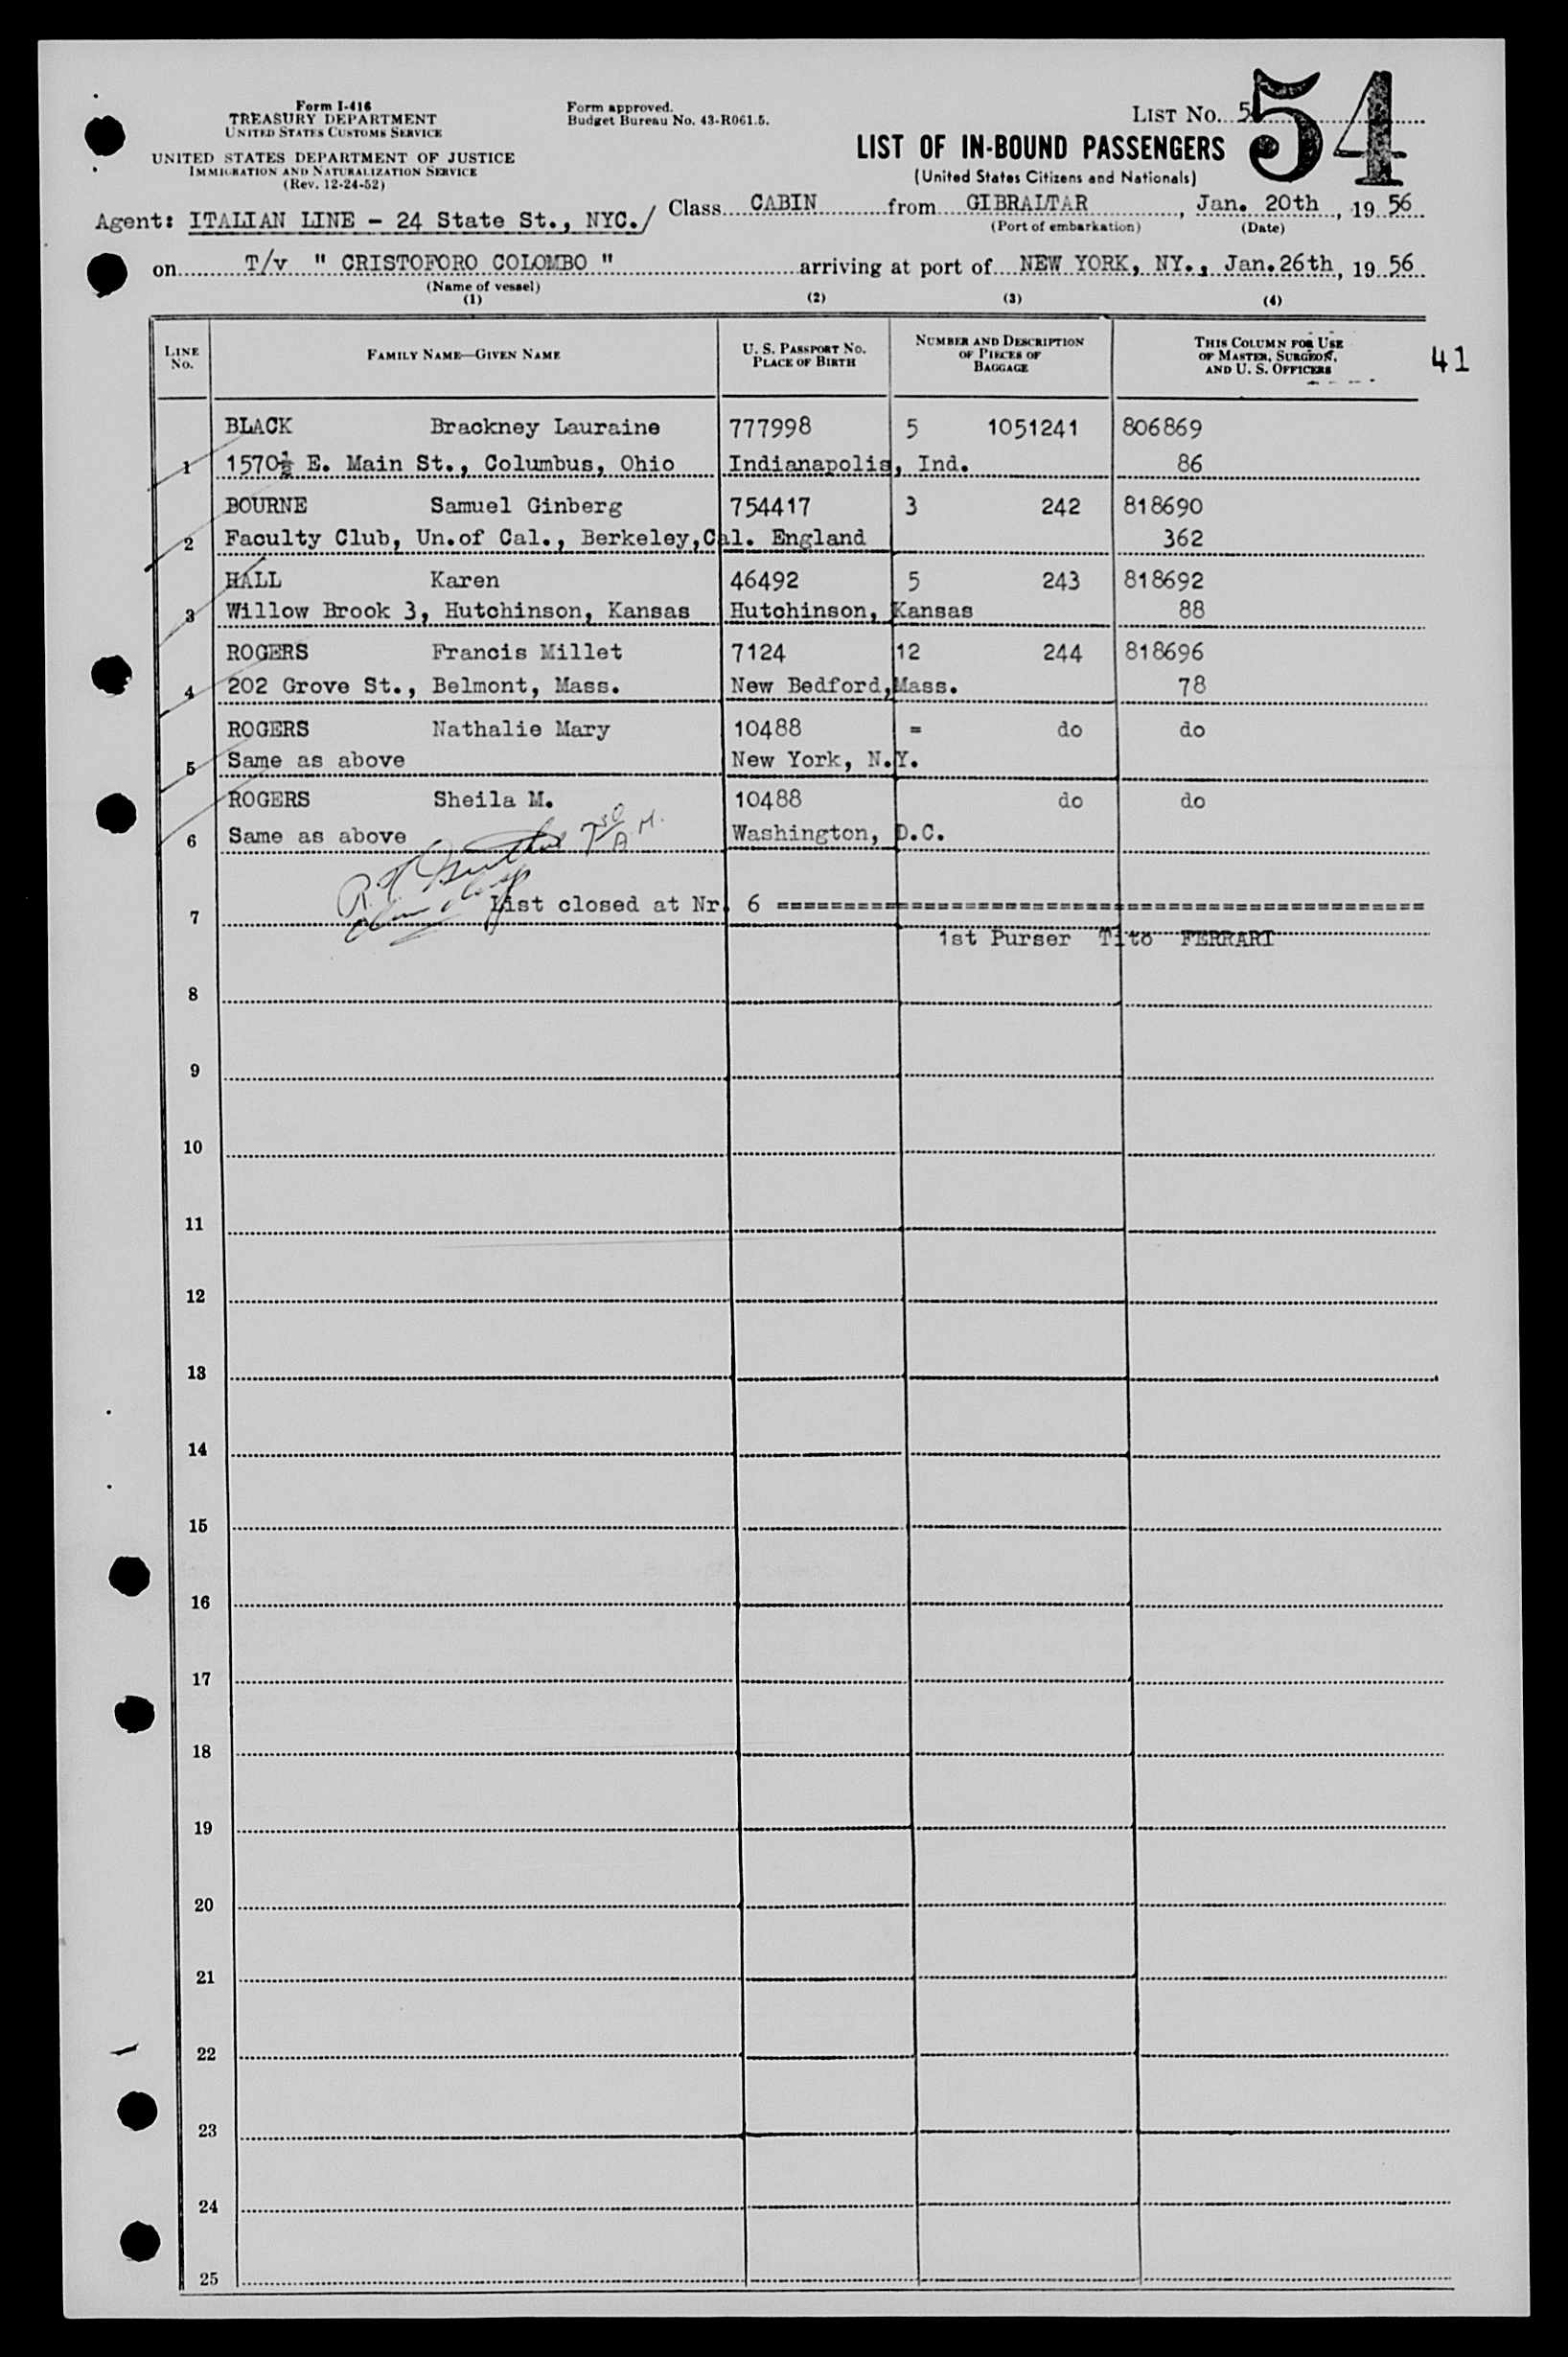 Form I-416
TREASURY DEPARTMENT
UNITED STATES CUSTOMS SERVICE
UNITED STATES DEPARTMENT OF JUSTICE
IMMIGRATION AND NATURALIZATION SERVICE
(Rev. 12-24-52)
Form approved.
Budget Bureau No. 43-R061.5.
LIST NO. 5
54
LIST OF IN-BOUND PASSENGERS
(United States Citizens and Nationals)
Agent: ITALIAN LINE - 24 State St., NYC./ Class CABIN from GIBRALTAR, Jan. 20th, 19 56
(Port of embarkation) (Date)
on T/v " CRISTOFORO COLOMBO " arriving at port of NEW YORK, NY., Jan.26th, 19 56
(Name of vessel)
(1) (2) (3) (4)
LINE NO. FAMILY NAME—GIVEN NAME U. S. PASSPORT NO. PLACE OF BIRTH NUMBER AND DESCRIPTION OF PIECES OF BAGGAGE THIS COLUMN FOR USE OF MASTER, SURGEON, AND U. S. OFFICERS 41
BLACK Brackney Lauraine 777998 5 1051241 806869
1 1570½ E. Main St., Columbus, Ohio Indianapolis, Ind. 86
BOURNE Samuel Ginberg 754417 3 242 818690
2 Faculty Club, Un.of Cal., Berkeley,Cal. England 362
HALL Karen 46492 5 243 818692
3 Willow Brook 3, Hutchinson, Kansas Hutchinson, Kansas 88
ROGERS Francis Millet 7124 12 244 818696
4 202 Grove St., Belmont, Mass. New Bedford,Mass. 78
ROGERS Nathalie Mary 10488 = do do
5 Same as above New York, N.Y.
ROGERS Sheila M. 10488 do do
6 Same as above Washington, D.C.
7 30 A.M.
7 List closed at Nr. 6 ================================================
1st Purser Tito FERRARI
8
9
10
11
12
13
14
15
16
17
18
19
20
21
22
23
24
25